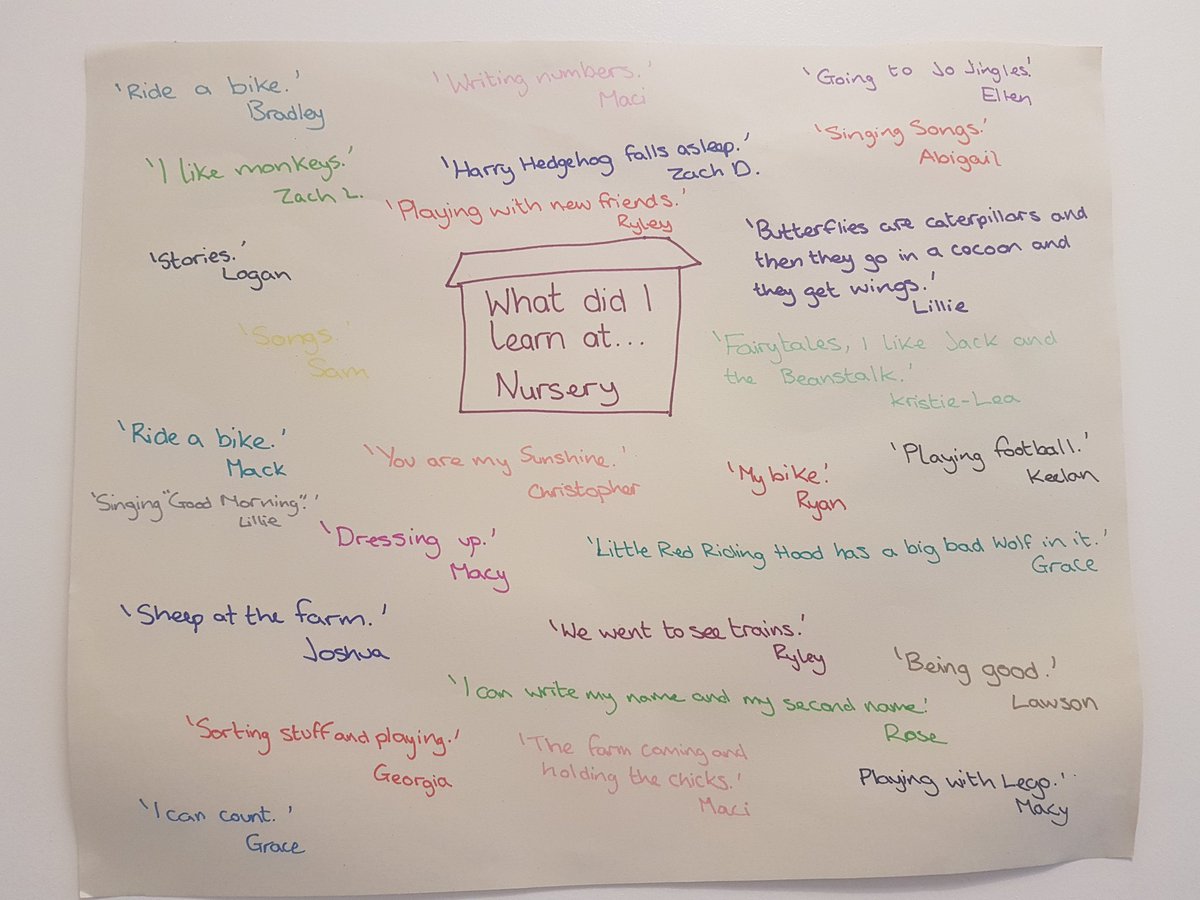 'Ride a bike.'
Bradley
'Writing numbers.'
Maci
'Going to Jo Jingles.'
Ellen
'I like monkeys.'
Zach L.
'Harry Hedgehog falls asleep.'
Zach D.
'Singing Songs.'
Abigail
'Playing with new friends.'
Ryley
'Stories.'
Logan
'Butterflies are caterpillars and
then they go in a cocoon and
they get wings.'
Lillie
What did I
learn at...
Nursery
'Songs.'
Sam
'Fairytales, I like Jack and
the Beanstalk.'
Kristie-Lea
'Ride a bike.'
Mack
'You are my Sunshine.'
Christopher
'My bike.'
Ryan
'Playing football.'
Keelan
'Singing "Good Morning".'
Lillie
'Dressing up.'
Macy
'Little Red Riding Hood has a big bad wolf in it.'
Grace
'Sheep at the farm.'
Joshua
'We went to see trains.'
Ryley
'Being good.'
Lawson
'I can write my name and my second name.'
Rose
'Sorting stuff and playing.'
Georgia
'The farm coming and
holding the chicks.'
Maci
Playing with Lego.'
Macy
'I can count.'
Grace